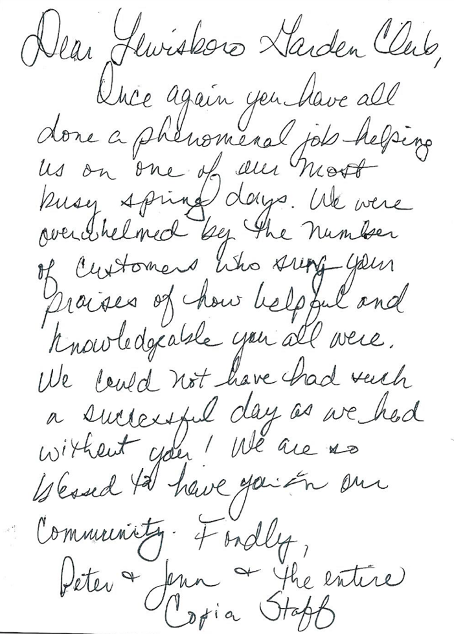 Dear Lewisboro Garden Club,
Once again you have all
done a phenomenal job helping
us on one of our most
busy spring days. We were
overwhelmed by the number
of customers who sung your
praises of how helpful and
knowledgeable you all were.
We could not have had such
a successful day as we had
without you! We are so
blessed to have you in our
Community. Fondly,
Peter & Jenn & the entire
Copia Staff